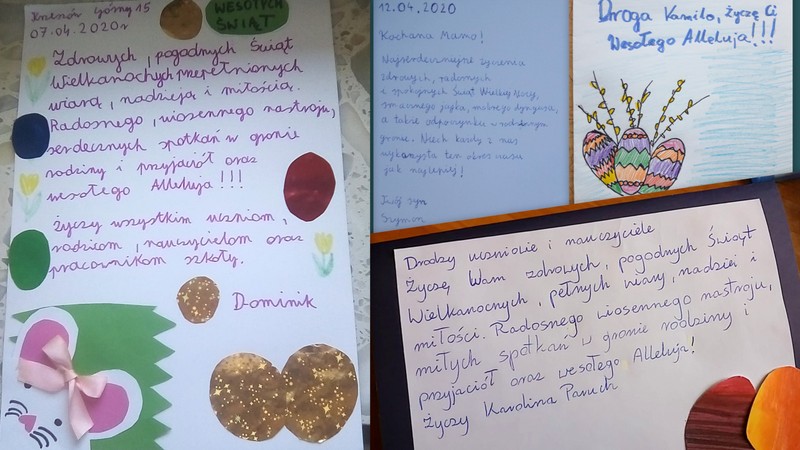 Górny 15
07.04.2020r
WESOŁYCH
ŚWIĄT
Zdrowych, pogodnych Świąt
Wielkanocnych przepełnionych
wiarą, nadzieją i miłością.
Radosnego, wiosennego nastroju,
serdecznych spotkań w gronie
rodziny i przyjaciół oraz
wesołego Alleluja!!!
Życzy wszystkim uczniom,
rodzicom, nauczycielom oraz
pracownikom szkoły.
Dominik
12.04.2020
Kochana Mamo!
Najserdeczniejsze życzenia
zdrowych, radosnych
i spokojnych Świąt Wielkiej Nocy,
smacznego jajka, mokrego dyngusa,
a także odpoczynku w rodzinnym
gronie. Niech każdy z nas
wykorzysta ten okres czasu
jak najlepiej!
Twój syn
Szymon
Droga Kamilo, życzę Ci
Wesołego Alleluja!!!
Drodzy uczniowie i nauczyciele
Życzę Wam zdrowych, pogodnych Świąt
Wielkanocnych, pełnych wiary, nadziei i
miłości. Radosnego wiosennego nastroju,
miłych spotkań w gronie rodziny i
przyjaciół oraz wesołego Alleluja!
Życzy Karolina Paruch